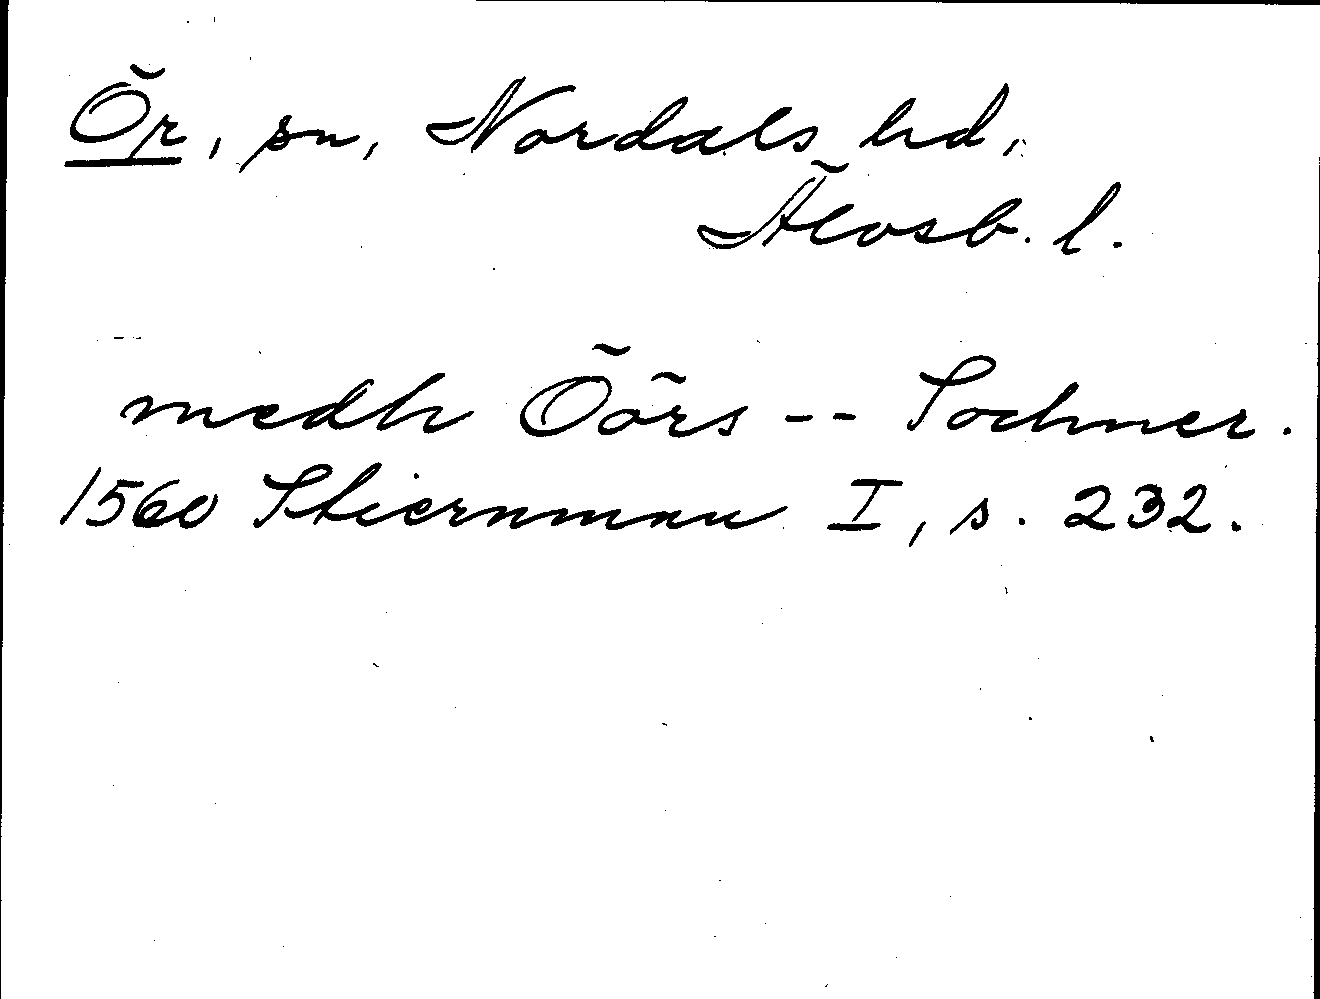 Ör, sn, Nordals hd,
Älvsb. l.
medh Öörs -- Sochner.
1560 Stiernman I, s. 232.